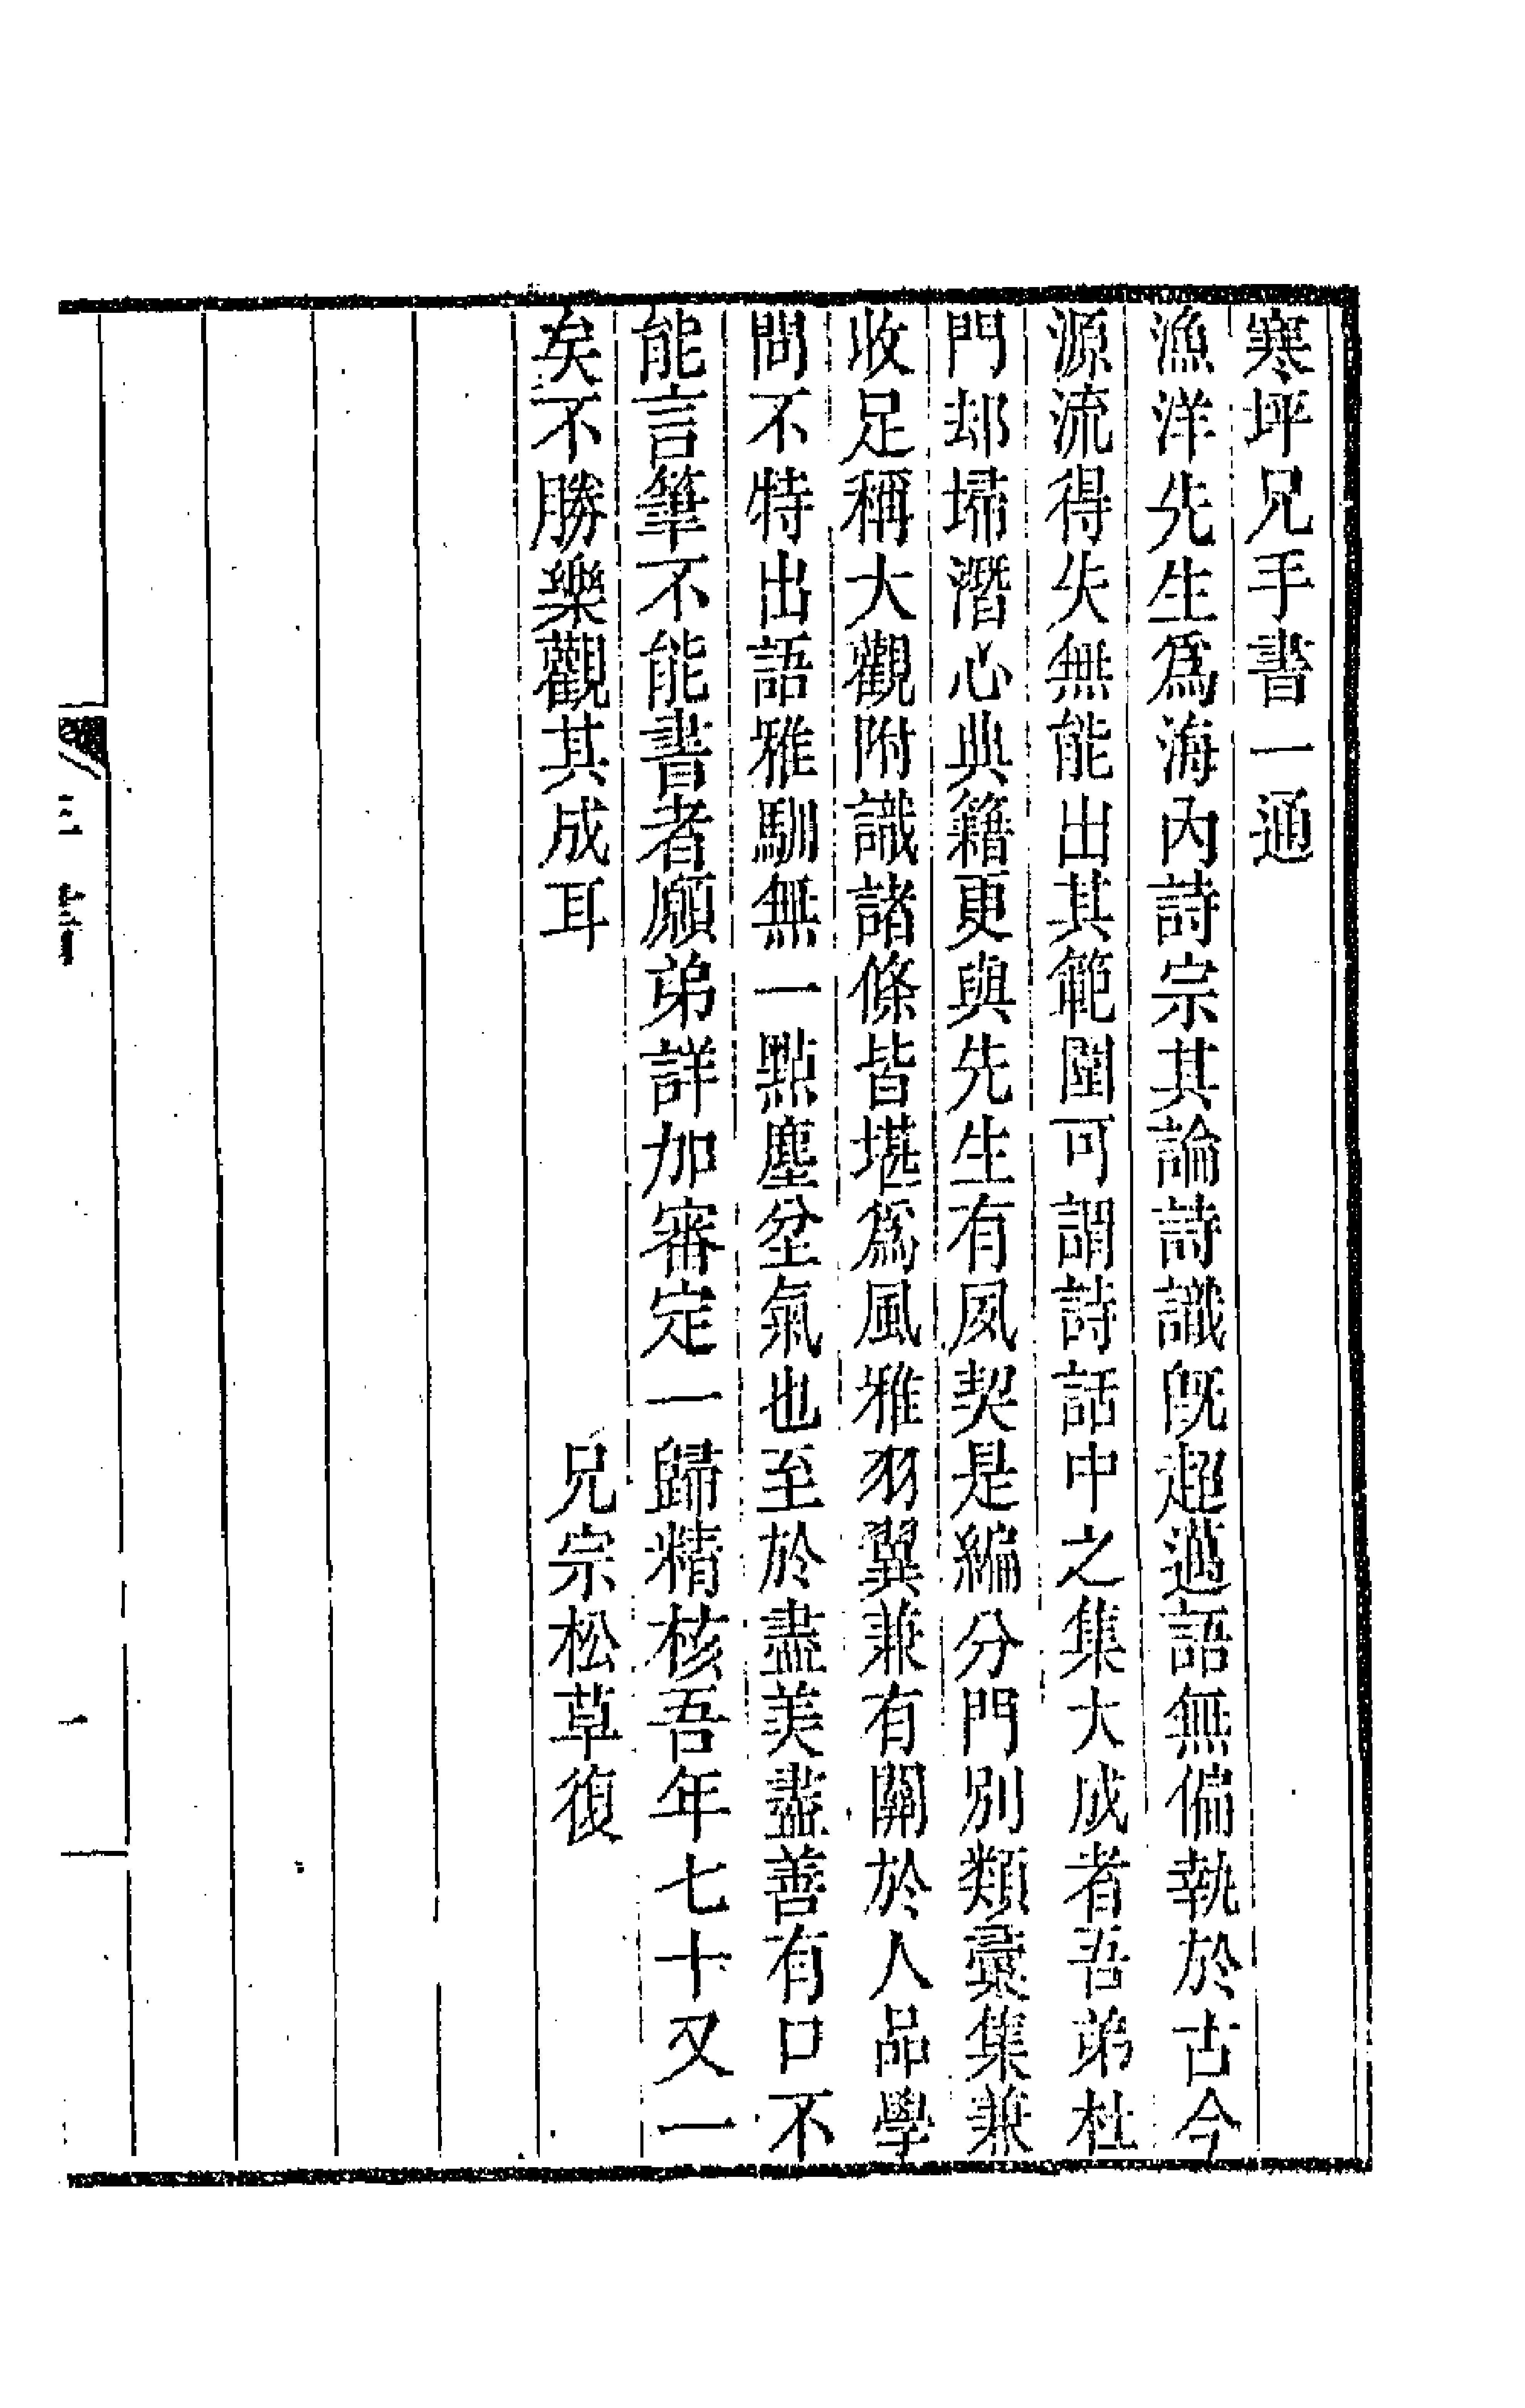 寒坪兄手書一通
漁洋先生爲海內詩宗其論詩識旣超邁語無偏執於古今
源流得失無能出其範圍可謂詩話中之集大成者吾弟杜
門却埽潛心典籍更與先生有夙契是編分門別類彙集兼
收足稱大觀附識諸條皆堪爲風雅羽翼兼有關於人品學
問不特出語雅馴無一點塵坌氣也至於盡美盡善有口不
能言筆不能書者願弟詳加審定一歸精核吾年七十又一
矣不勝樂觀其成耳
兄宗松草復
一